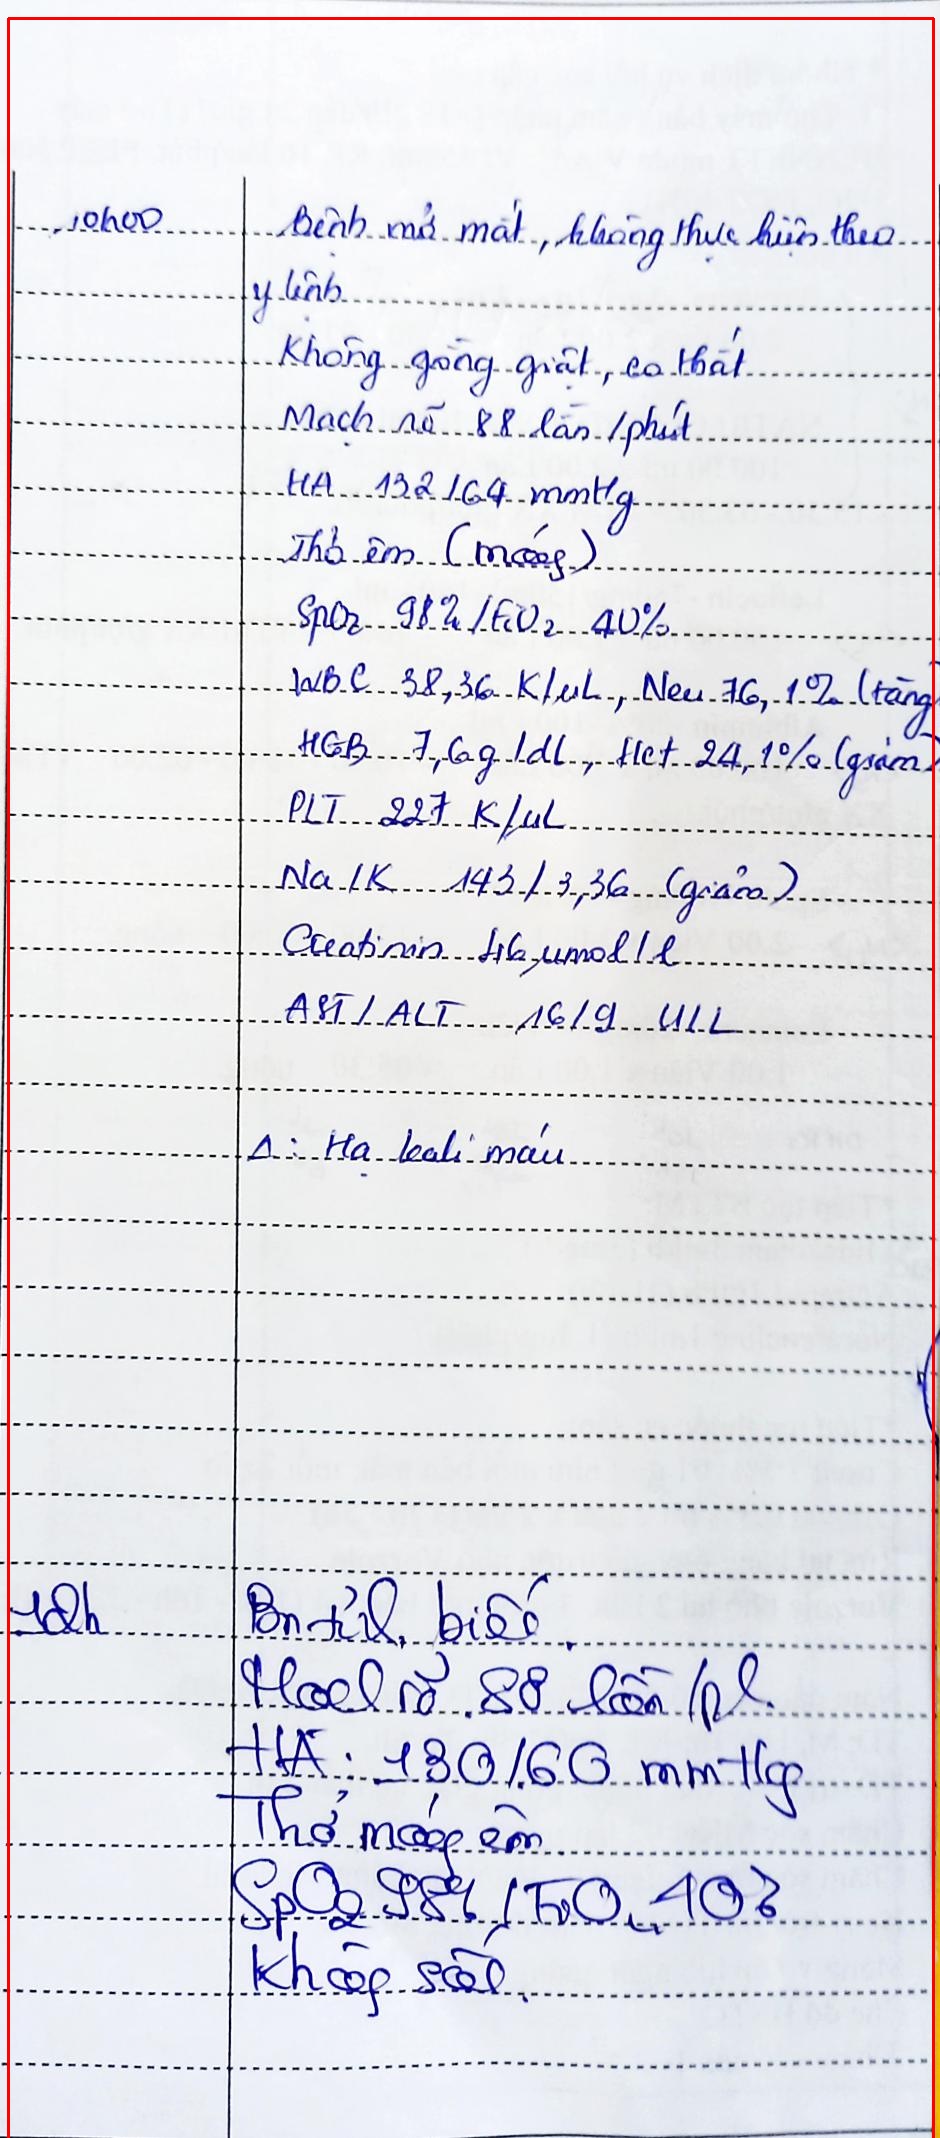 10h00 Bệnh mở mắt, không thực hiện theo
y lệnh
Không gồng giật, co thắt
Mạch rõ 88 lần/phút
HA 132/64 mmHg
Thở êm (máy)
SpO2 98%/FiO2 40%
WBC 38,36 K/uL, Neu 76,1% (tăng)
HGB 7,6g/dL, Hct 24,1% (giảm)
PLT 227 K/uL
Na/K 143/3,36 (giảm)
Creatinin 46 umol/l
AST/ALT 16/9 U/L
Δ: Hạ kali máu
Bn biết.
rõ 88 lần/ph
HA: 130/60 mmHg
Thở máy êm
SpO2 98% / FiO2 40%
Không sốt.